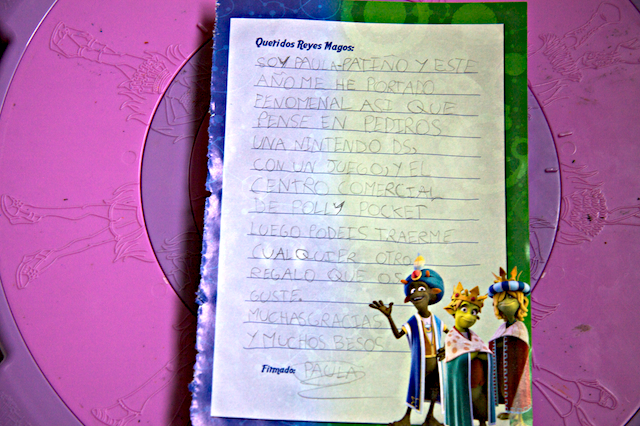 Queridos Reyes Magos:
SOY PAULA PATIÑO Y ESTE
AÑO ME HE PORTADO
FENOMENAL ASI QUE
PENSE EN PEDIROS
UNA NINTENDO DS,
CON UN JUEGO, Y EL
CENTRO COMERCIAL
DE POLLY POCKET
LUEGO PODEIS TRAERME
CUALQUIER OTRO
REGALO QUE OS
GUSTE.
MUCHAS GRACIAS
Y MUCHOS BESOS
Firmado: PAULA